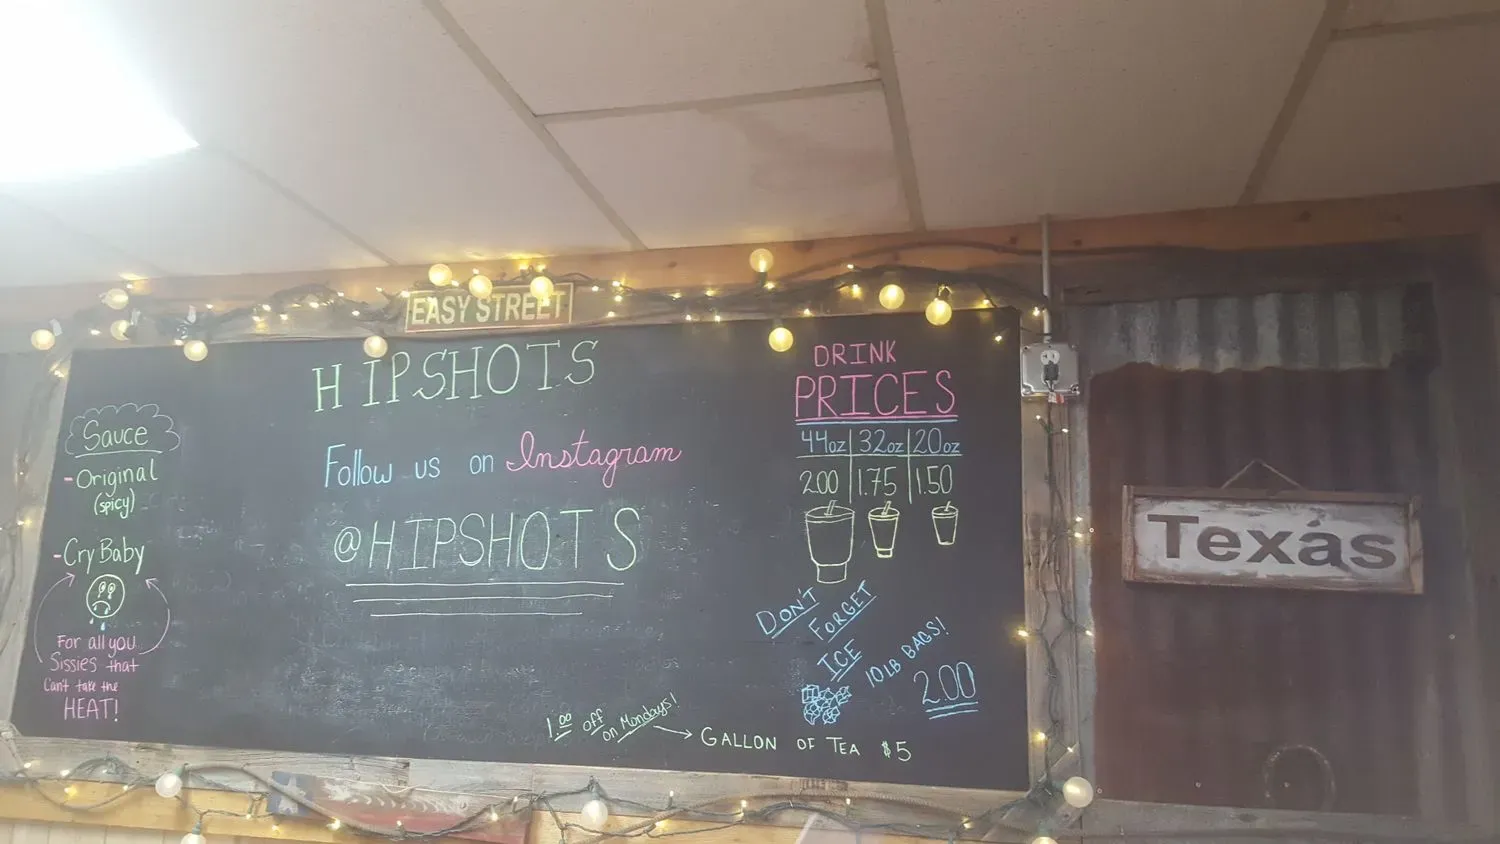 EASY STREET
HIPSHOTS
Follow us on Instagram
@HIPSHOTS
Sauce
-Original
(spicy)
-Cry Baby
For all you
Sissies that
Can't take the
HEAT!
DRINK
PRICES
44oz 32oz 20oz
2.00 1.75 1.50
DON'T
FORGET
ICE
10LB BAGS!
2.00
1.00 off
on Mondays!
GALLON OF TEA $5
Texas